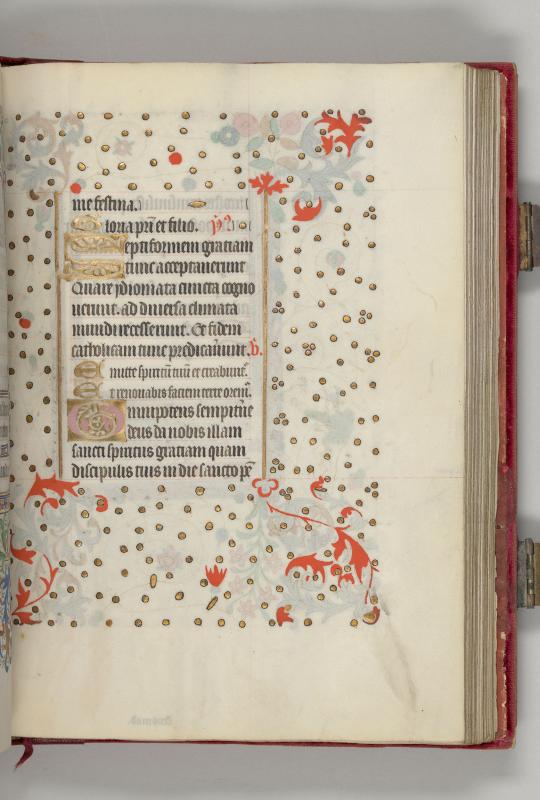 me festina.
Gloria pri et filio. ym9
Septiformem gratiam
tunc acceptauerunt
Quare ydiomata cuncta cogno
uerunt. ad diuersa climata
mundi recesserunt. Et fidem
catholicam tunc predicauerunt. v.
Emitte spiritū tuū et creabunt.
Et renouabis faciem terre orem9.
Omnipotens sempiterne
deus da nobis illam
sancti spiritus gratiam quam
discipulis tuis in die sancto pē